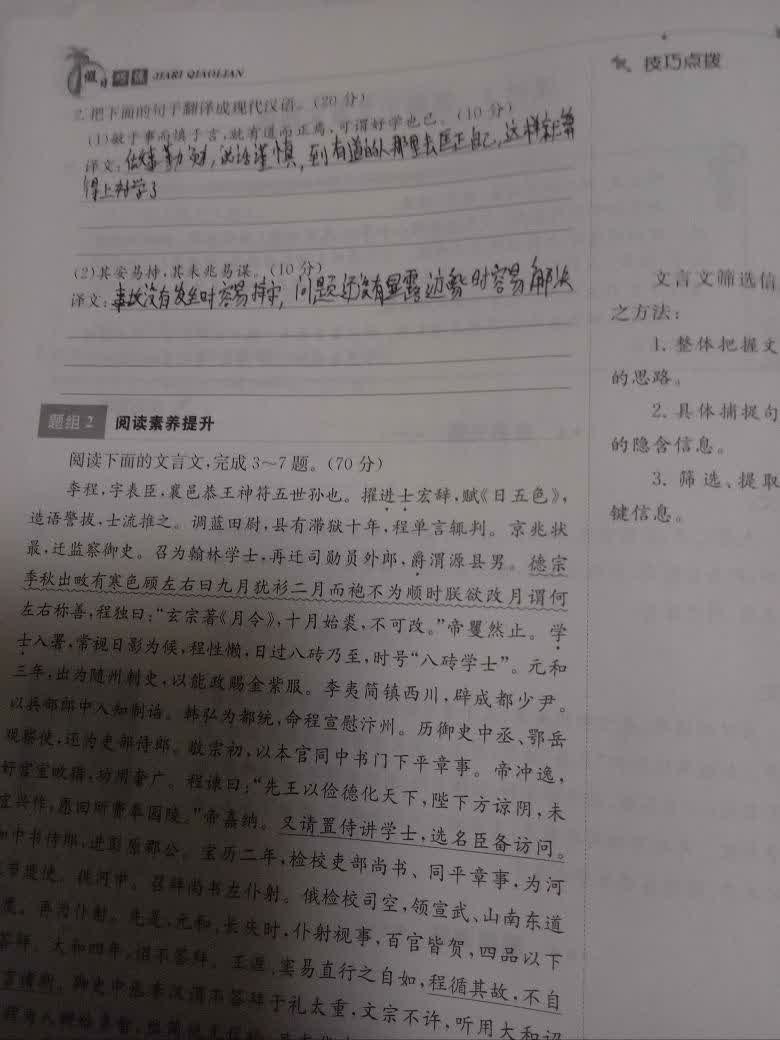 假日 JIARI QIAOLIAN
技巧点拨
2.把下面的句子翻译成现代汉语。(20分)
(1)敏于事而慎于言,就有道而正焉,可谓好学也已。(10分)
译文:做事勤勉,说话谨慎,到有道的人那里去匡正自己,这样就算
得上好学了
(2)其安易持,其未兆易谋。(10分)
译文:事故没有发生时容易持守,问题还没有显露迹象时容易解决
题组2 阅读素养提升
阅读下面的文言文,完成3~7题。(70分)
李程,字表臣,襄邑恭王神符五世孙也。擢进士宏辞,赋《日五色》,
造语警拔,士流推之。调蓝田尉,县有滞狱十年,程单言辄判。京兆状
最,迁监察御史。召为翰林学士,再迁司勋员外郎,爵渭源县男。德宗
季秋出畋有寒色顾左右曰九月犹衫二月而袍不为顺时朕欲改月谓何
左右称善,程独曰:“玄宗著《月令》,十月始裘,不可改。”帝矍然止。学
士入署,常视日影为候,程性懒,日过八砖乃至,时号“八砖学士”。元和
三年,出为随州刺史,以能政赐金紫服。李夷简镇西川,辟成都少尹。
以兵部郎中入知制诰。韩弘为都统,命程宣慰汴州。历御史中丞、鄂岳
观察使,还为吏部侍郎。敬宗初,以本官同中书门下平章事。帝冲逸,
好宫室畋猎,功用奢广。程谏曰:“先王以俭德化天下,陛下方谅阴,未
宜兴作,愿回所费奉园陵。”帝嘉纳。又请置侍讲学士,选名臣备访问。
加中书侍郎,进彭原郡公。宝历二年,检校吏部尚书、同平章事,为河
节度使。徙河中。召拜尚书左仆射。俄检校司空,领宣武、山南东道
度。再为仆射。先是,元和、长庆时,仆射视事,百官皆贺,四品以下
答拜。大和四年,诏不答拜。王涯、窦易直行之自如,程循其故,不自
言诸朝。御史中丞李汉谓不答拜于礼太重,文宗不许,听用大和诏
文言文筛选信
之方法:
1.整体把握文
的思路。
2.具体捕捉句
的隐含信息。
3.筛选、提取
键信息。